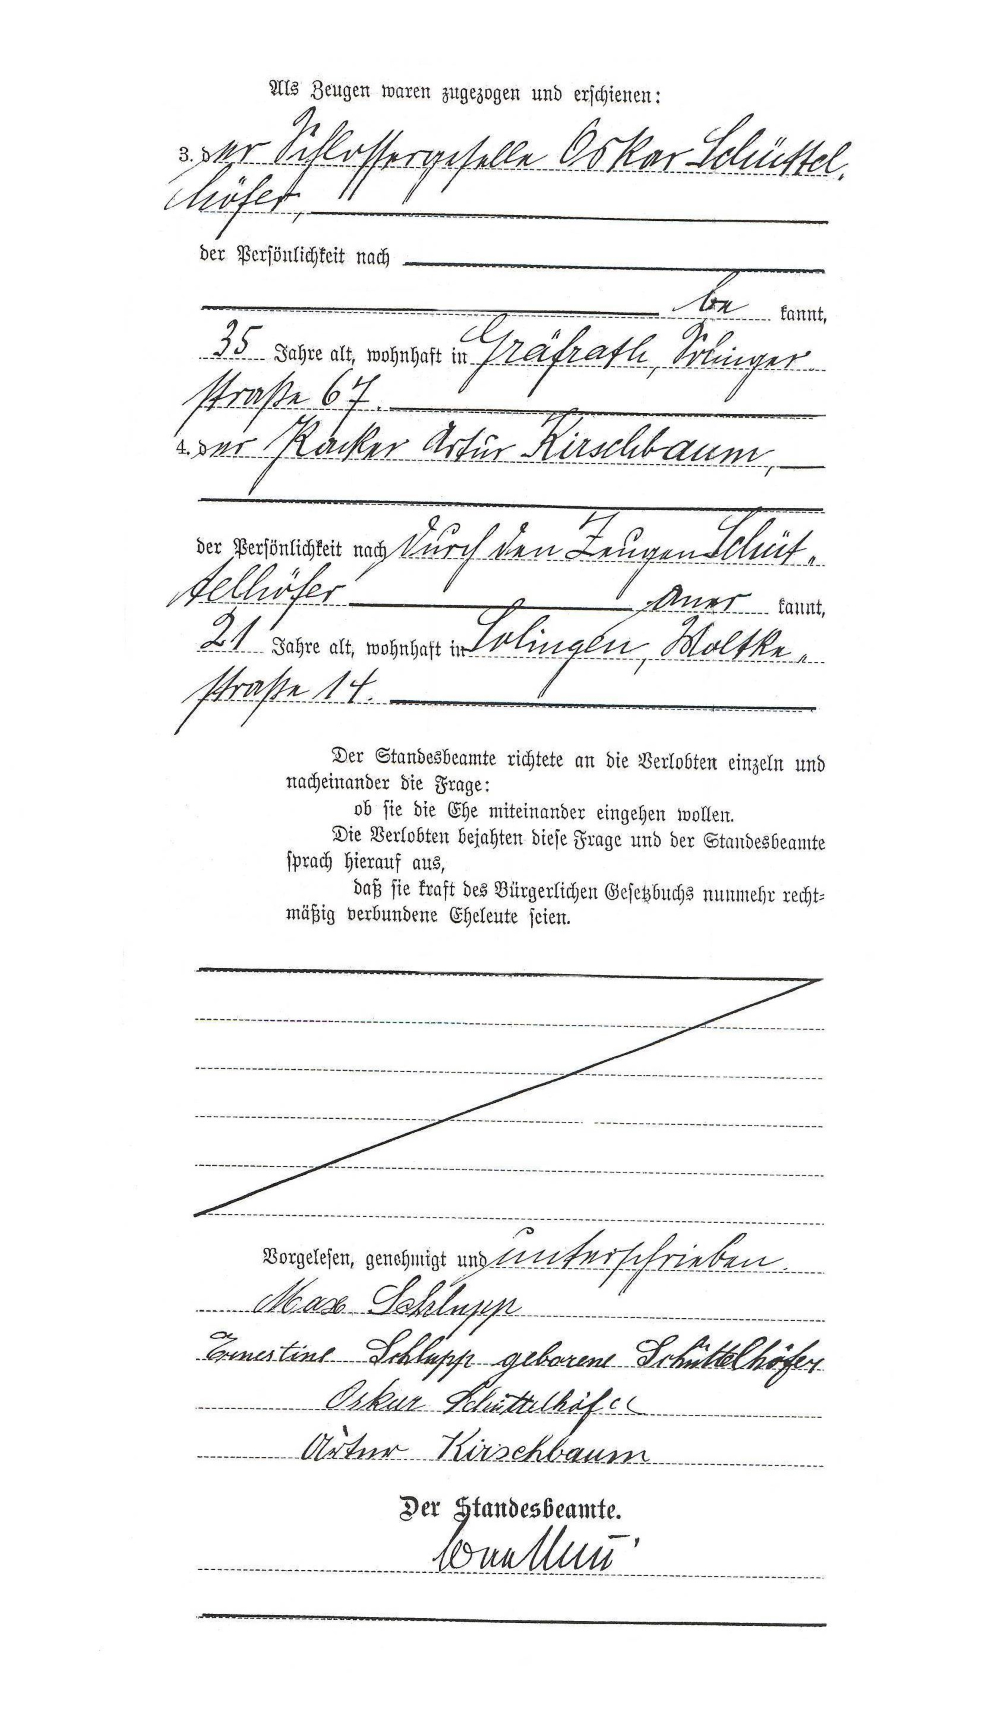 Als Zeugen waren zugezogen und erschienen:
3. der Schlossergeselle Oskar Schüttel-
höfer,
der Persönlichkeit nach
be kannt,
35 Jahre alt, wohnhaft in Gräfrath, Solinger-
straße 67.
4. der Artur Kirschbaum,
der Persönlichkeit nach durch den Zeugen Schüt-
telhöfer aner kannt,
21 Jahre alt, wohnhaft in Solingen, Moltke-
straße 14.
Der Standesbeamte richtete an die Verlobten einzeln und
nacheinander die Frage:
ob sie die Ehe miteinander eingehen wollen.
Die Verlobten bejahten diese Frage und der Standesbeamte
sprach hierauf aus,
daß sie kraft des Bürgerlichen Gesetzbuchs nunmehr recht-
mäßig verbundene Eheleute seien.
Vorgelesen, genehmigt und unterschrieben.
Max Schlupp
Ernestine Schlupp geborene Schüttelhöfer
Oskar Schüttelhöfer
Artur Kirschbaum
Der Standesbeamte.